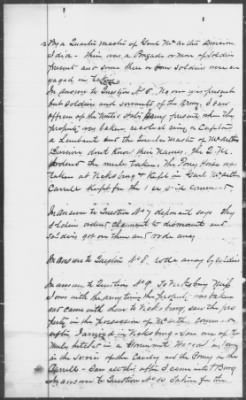 By a Quarter master of Genl McArthurs Division
I did - there was a Brigade or more of Soldiers
present and some three or four soldiers were en
gaged in taking
In answer to Question No 6. No one was present
but soldiers and servants of the army, I saw
officers of the United States Army present when the
property was taken, a Captain
a Lieutenant and the quarter master of McArthur
Division dont know their names, the Q. M.
the mules taken. The Pony Horse was
taken at Vicksburg Kept in Genl McArthur
Kept for the use of in command.
In answer to Question No 7 deponent says They
soldiers ordered Claimant to dismount and
soldiers got on them and rode away
In answer to Question No 8. rode away by soldiers
In answer to Question No 9. To Vicksburg Miss
I was with the army when the property was taken
and came with them to Vicksburg, saw the pro
perty in the possession of McArthurs command
after I arrived in Vicksburg - Saw one of the
mules hitched in a Government Wagon
in the service of the and the Pony in the
- Saw all this after I came to VBurg
In answer to Question No 10 Taken for the